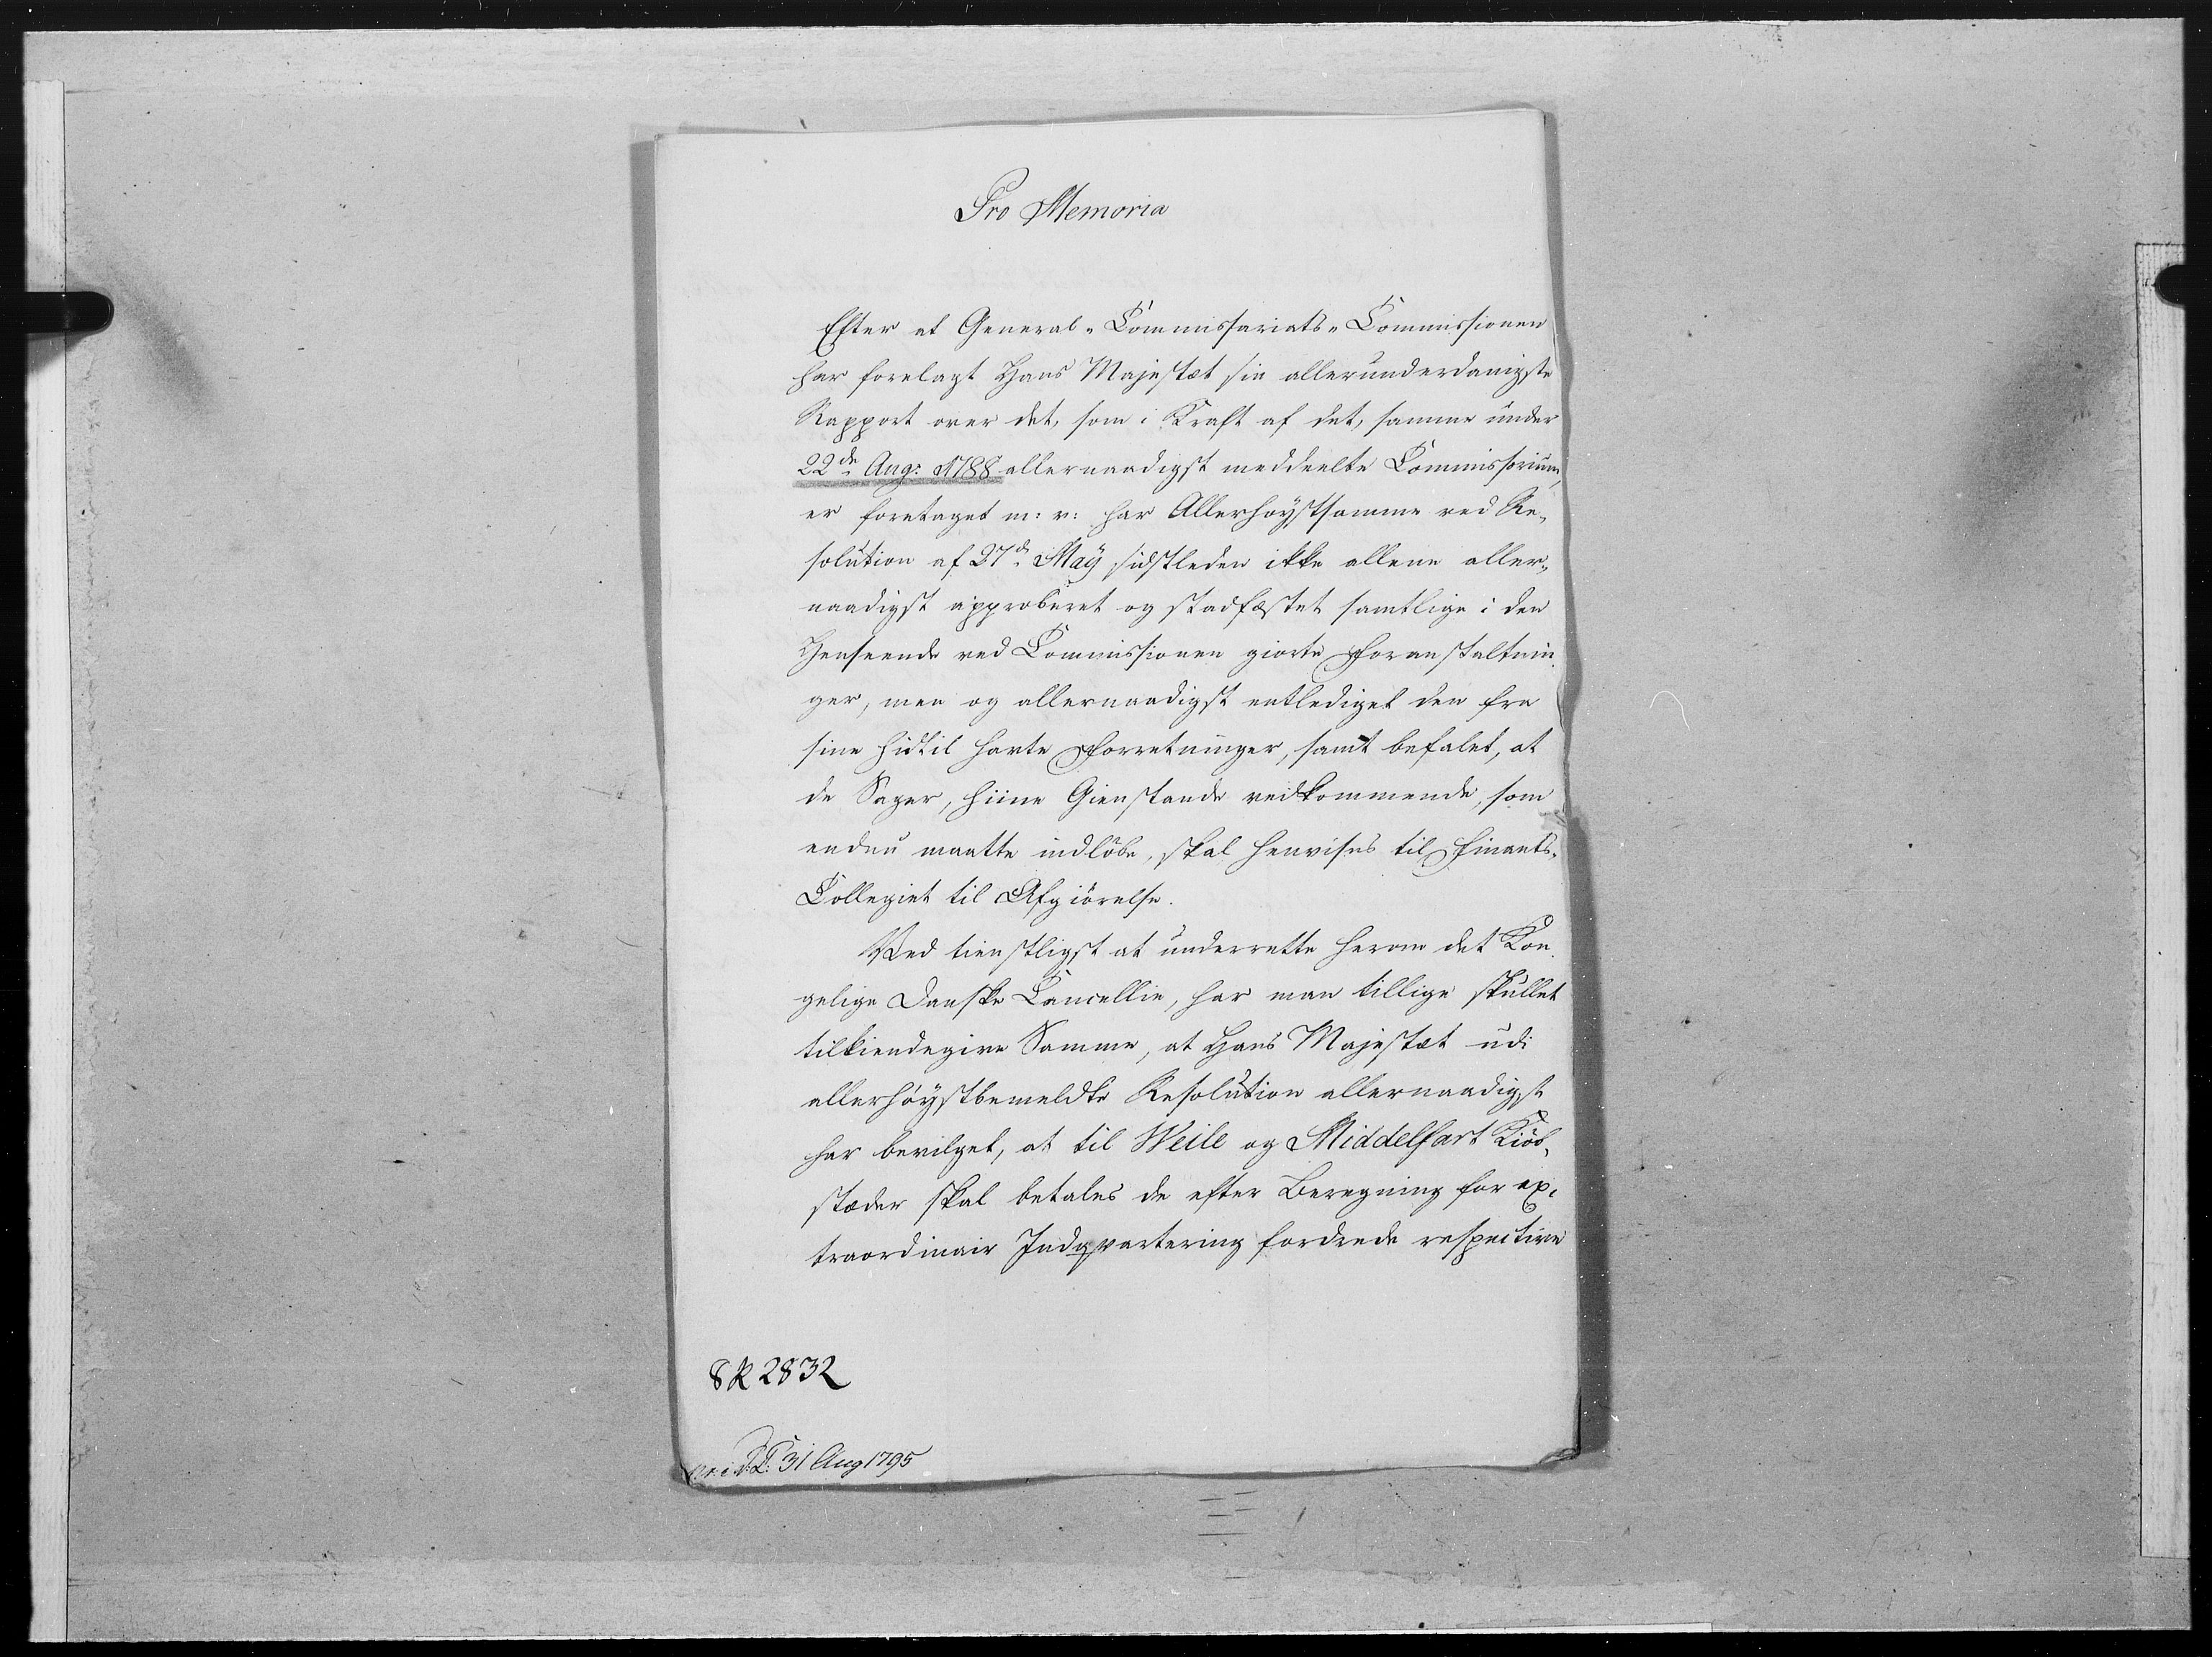 Pro Memoria
Efter at General-Commissariats-Commissionen
har forelagt Hans Majestæt sin allerunderdanigste
Rapport over det, som i Kraft af det, samme under
22de Aug: 1788 allernaadigst meddeelte Commissorium,
er foretaget m: v: har Allerhøystsamme ved Re-
solution af 27d. May sidstleden ikke allene aller-
naadigst approberet og stadfæstet samtlige i den
Henseende ved Commissionen giorte Foranstaltnin-
ger, men og allernaadigst entlediget den fra
sine hidtil havte Forretninger, samt befalet, at
de Sager, hiine Gienstande vedkommende, som
endnu maatte indløbe, skal henvises til Finants-
Collegiet til Afgiörelse.
Ved tienstligst at underrette herom det Kon-
gelige Danske Cancellie, har man tillige skullet
tilkiendegive Samme, at Hans Majestæt udi
allerhöystbemeldte Resolution allernaadigst
har bevilget, at til Weile og Middelfart Kiöb-
stæder skal betales de efter Beregning for ex-
traordinair Indqvartering fordrede respective
8R 2832
31 Aug 1795